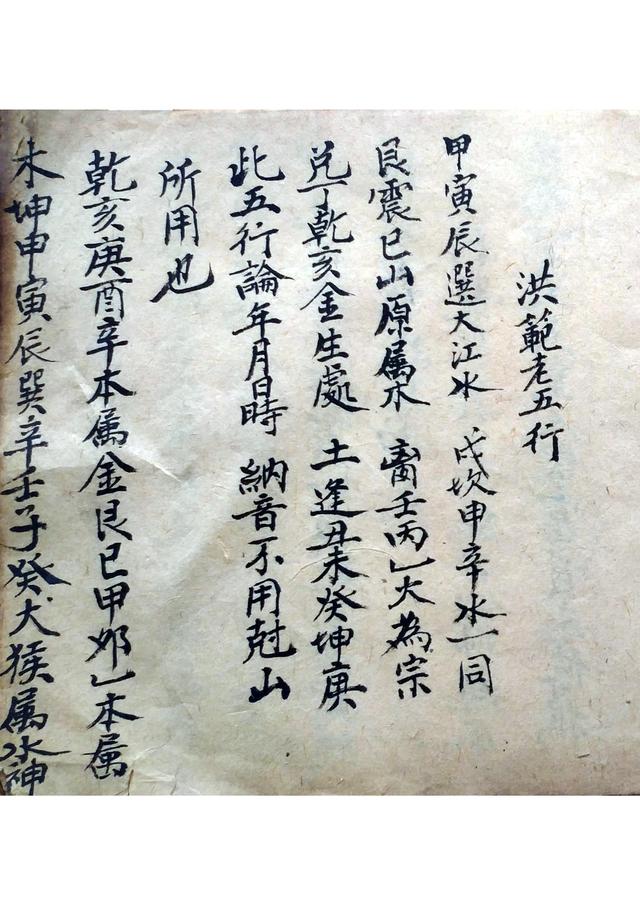 洪範老五行
甲寅辰選大江水 戊坎申辛水一同
艮震巳山原属木 离壬丙乚大為宗
兌丁乾亥金生處 土逢丑未癸坤庚
此五行論年月日時 納音不用尅山
所用也
乾亥庚酉辛本属金艮巳甲卯乚本属
木坤申寅辰巽辛壬子癸犬猴属水神